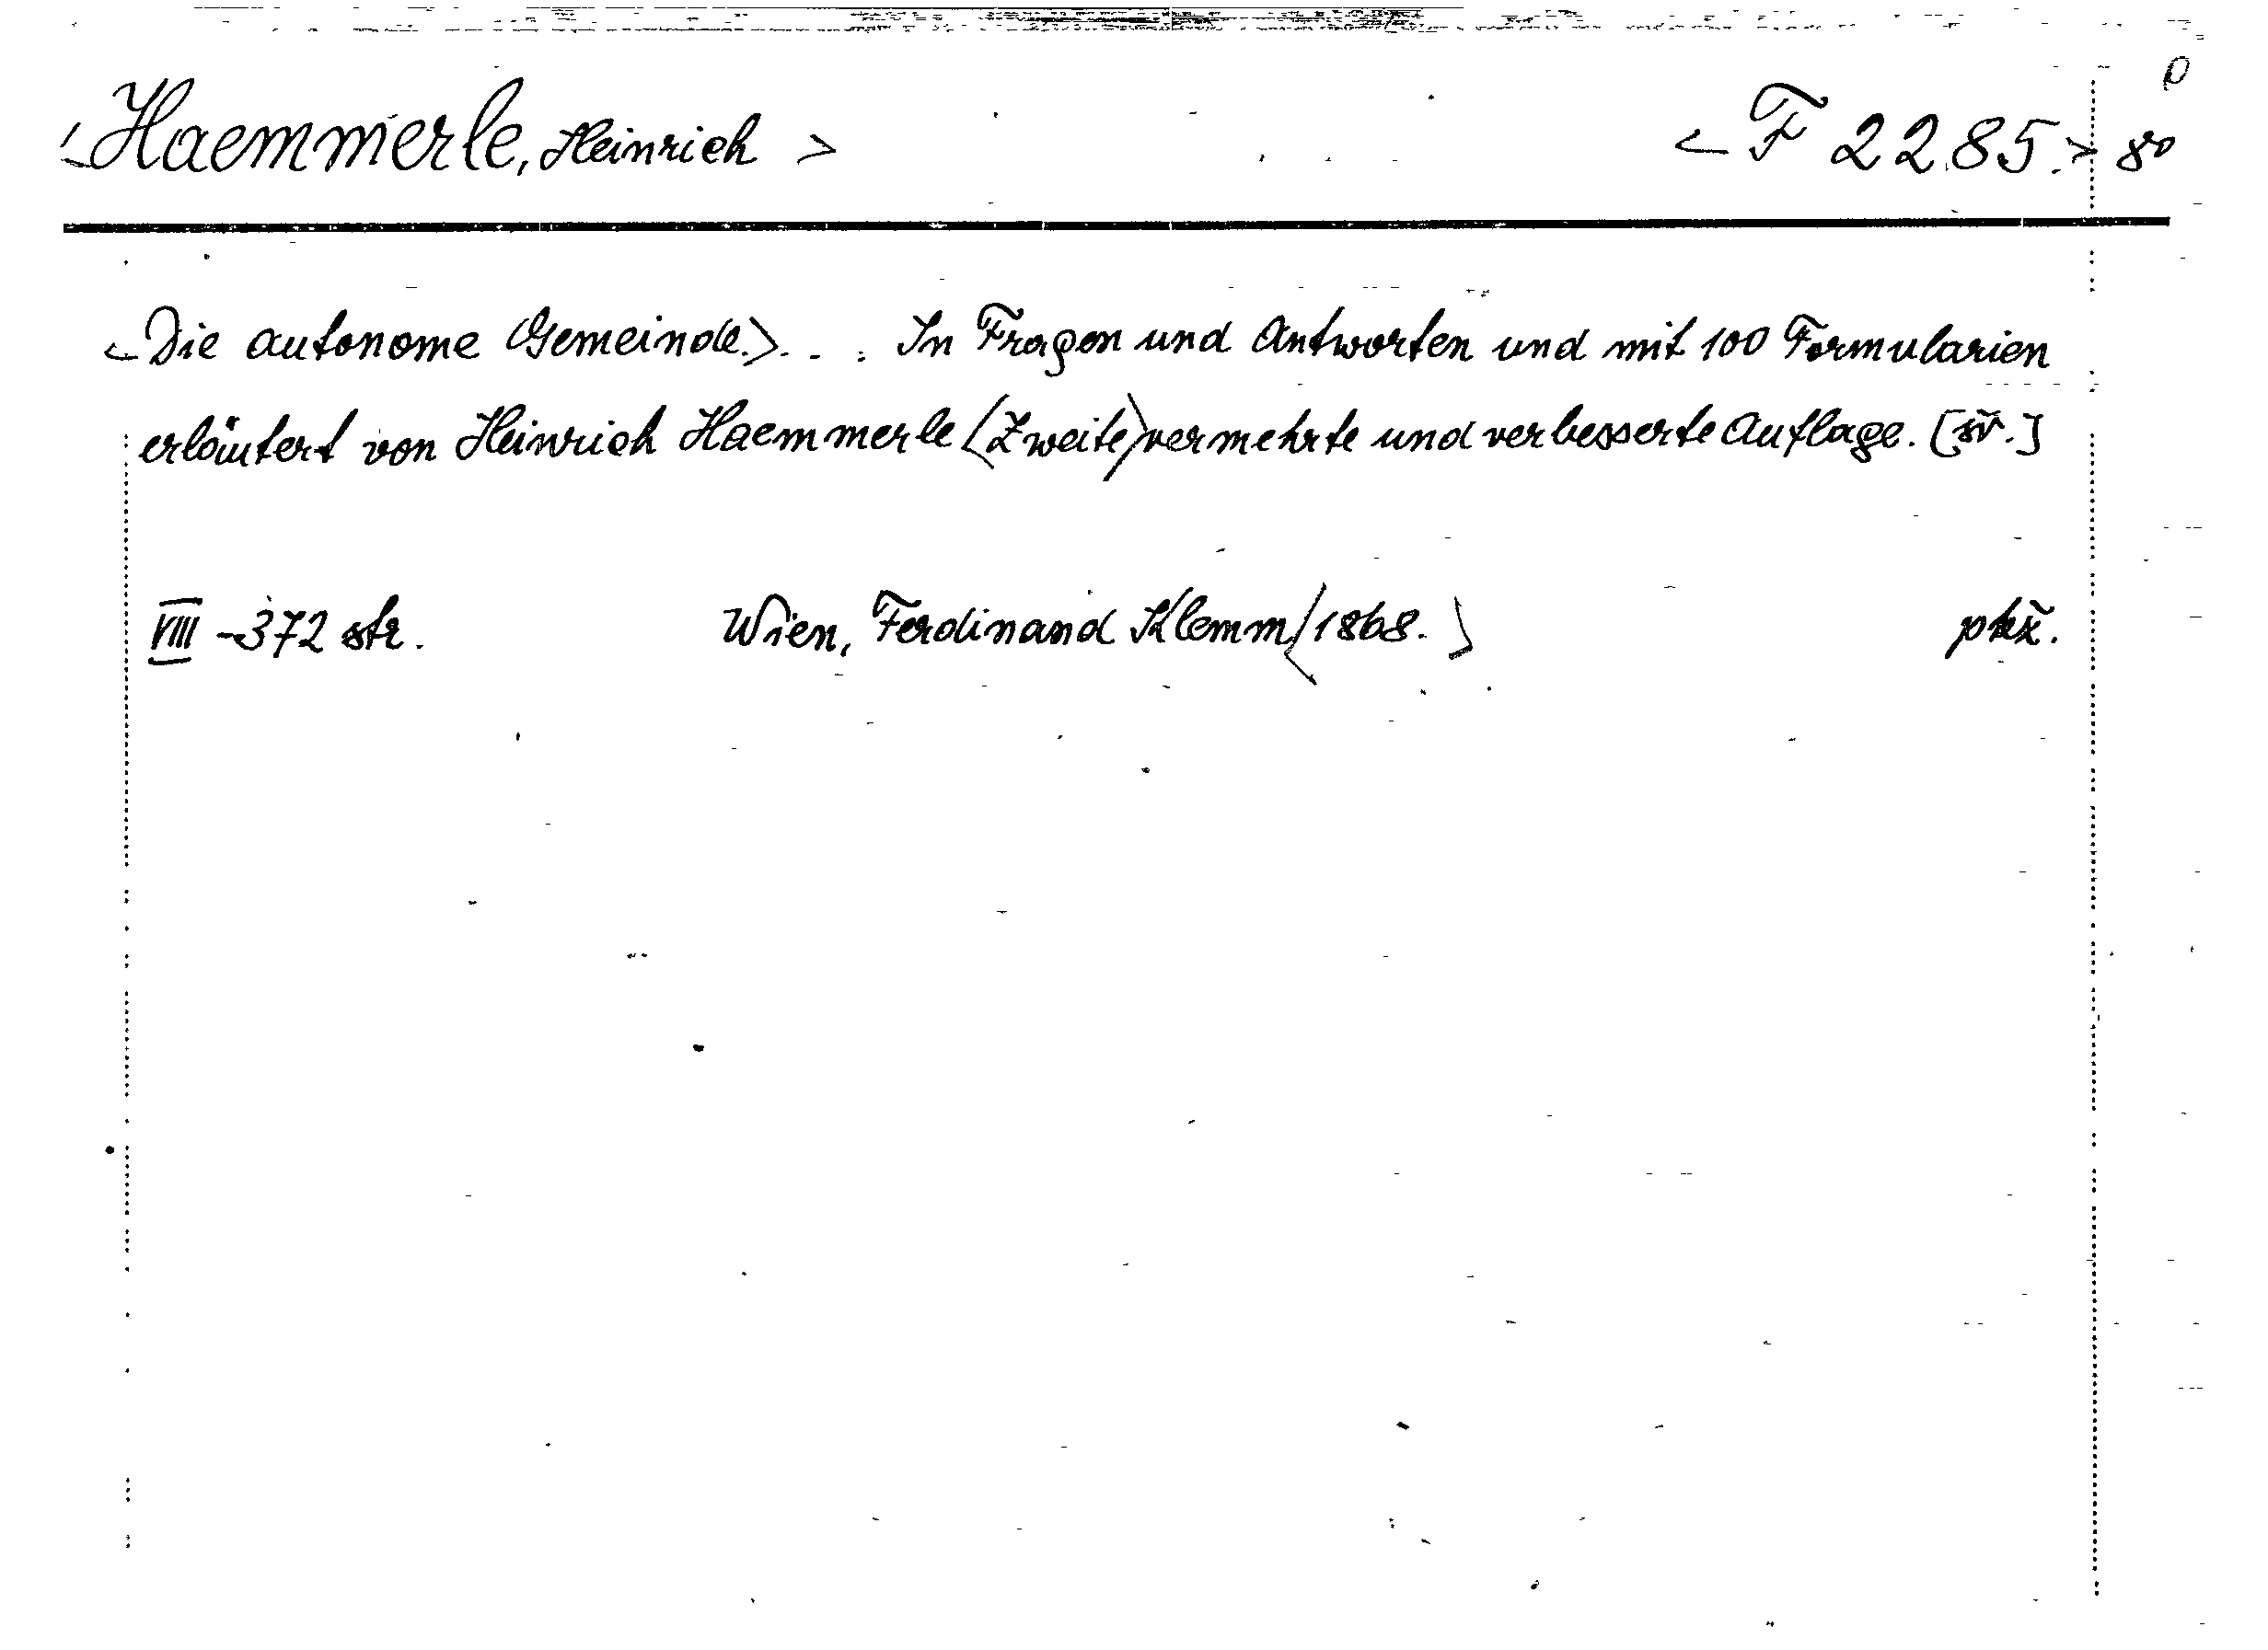 <Haemmerle, Heinrich> <F 2285.> 8°
<Die autonome Gemeinde.>... In Fragen und Antworten und mit 100 Formularien
erläutert von Heinrich Haemmerle <Zweite> vermehrte und verbesserte Auflage. [šv.]
VIII -372 str. Wien, Ferdinand Klemm <1868.>